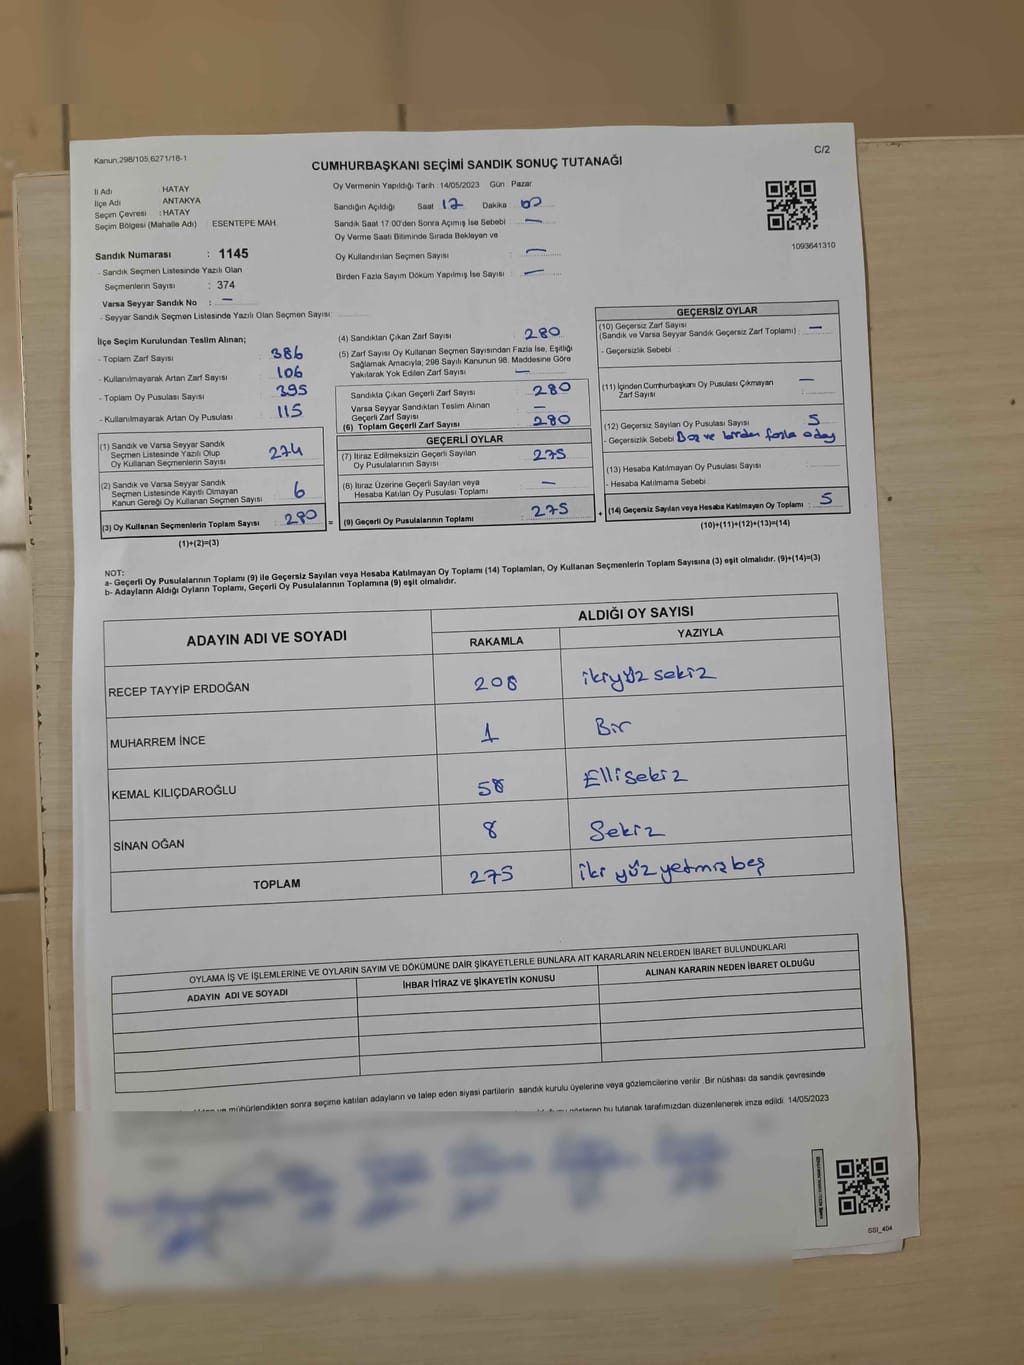 Kanun,298/105,6271/18-1
C/2
CUMHURBAŞKANI SEÇİMİ SANDIK SONUÇ TUTANAĞI
İl Adı HATAY
İlçe Adı ANTAKYA
Seçim Çevresi : HATAY
Seçim Bölgesi (Mahalle Adı) : ESENTEPE MAH.
Oy Vermenin Yapıldığı Tarih :14/05/2023 Gün : Pazar
Sandığın Açıldığı Saat 17 Dakika 00
Sandık Saat 17:00'den Sonra Açımış İse Sebebi : —
Oy Verme Saati Bitiminde Sırada Bekleyen ve
Oy Kullandırılan Seçmen Sayısı : —
Birden Fazla Sayım Döküm Yapılmış İse Sayısı : —
1093641310
Sandık Numarası : 1145
- Sandık Seçmen Listesinde Yazılı Olan
Seçmenlerin Sayısı : 374
Varsa Seyyar Sandık No : —
- Seyyar Sandık Seçmen Listesinde Yazılı Olan Seçmen Sayısı:
İlçe Seçim Kurulundan Teslim Alınan;
- Toplam Zarf Sayısı : 386
- Kullanılmayarak Artan Zarf Sayısı : 106
- Toplam Oy Pusulası Sayısı : 395
- Kullanılmayarak Artan Oy Pusulası : 115
(1) Sandık ve Varsa Seyyar Sandık
Seçmen Listesinde Yazılı Olup
Oy Kullanan Seçmenlerin Sayısı : 274
(2) Sandık ve Varsa Seyyar Sandık
Seçmen Listesinde Kayıtlı Olmayan
Kanun Gereği Oy Kullanan Seçmen Sayısı : 6
(3) Oy Kullanan Seçmenlerin Toplam Sayısı : 280
(1)+(2)=(3)
(4) Sandıktan Çıkan Zarf Sayısı : 280
(5) Zarf Sayısı Oy Kullanan Seçmen Sayısından Fazla İse, Eşitliği
Sağlamak Amacıyla; 298 Sayılı Kanunun 98. Maddesine Göre
Yakılarak Yok Edilen Zarf Sayısı : —
Sandıkta Çıkan Geçerli Zarf Sayısı : 280
Varsa Seyyar Sandıktan Teslim Alınan
Geçerli Zarf Sayısı : —
(6) Toplam Geçerli Zarf Sayısı : 280
GEÇERLİ OYLAR
(7) İtiraz Edilmeksizin Geçerli Sayılan
Oy Pusulalarının Sayısı : 275
(8) İtiraz Üzerine Geçerli Sayılan veya
Hesaba Katılan Oy Pusulası Toplamı : —
= (9) Geçerli Oy Pusulalarının Toplamı : 275
GEÇERSİZ OYLAR
(10) Geçersiz Zarf Sayısı
(Sandık ve Varsa Seyyar Sandık Geçersiz Zarf Toplamı) : —
- Geçersizlik Sebebi :
(11) İçinden Cumhurbaşkanı Oy Pusulası Çıkmayan
Zarf Sayısı : —
(12) Geçersiz Sayılan Oy Pusulası Sayısı : 5
- Geçersizlik Sebebi : Boş ve birden fazla aday
(13) Hesaba Katılmayan Oy Pusulası Sayısı :
- Hesaba Katılmama Sebebi :
+ (14) Geçersiz Sayılan veya Hesaba Katılmayan Oy Toplamı : 5
(10)+(11)+(12)+(13)=(14)
NOT:
a- Geçerli Oy Pusulalarının Toplamı (9) ile Geçersiz Sayılan veya Hesaba Katılmayan Oy Toplamı (14) Toplamları, Oy Kullanan Seçmenlerin Toplam Sayısına (3) eşit olmalıdır. (9)+(14)=(3)
b- Adayların Aldığı Oyların Toplamı, Geçerli Oy Pusulalarının Toplamına (9) eşit olmalıdır.
ADAYIN ADI VE SOYADI ALDIĞI OY SAYISI
RAKAMLA YAZIYLA
RECEP TAYYİP ERDOĞAN 208 ikiyüz sekiz
MUHARREM İNCE 1 Bir
KEMAL KILIÇDAROĞLU 58 Ellisekiz
SİNAN OĞAN 8 Sekiz
TOPLAM 275 iki yüz yetmiş beş
OYLAMA İŞ VE İŞLEMLERİNE VE OYLARIN SAYIM VE DÖKÜMÜNE DAİR ŞİKAYETLERLE BUNLARA AİT KARARLARIN NELERDEN İBARET BULUNDUKLARI
ADAYIN ADI VE SOYADI İHBAR İTİRAZ VE ŞİKAYETİN KONUSU ALINAN KARARIN NEDEN İBARET OLDUĞU
mühürlendikten sonra seçime katılan adayların ve talep eden siyasi partilerin sandık kurulu üyelerine veya gözlemcilerine verilir .Bir nüshası da sandık çevresinde
bu tutanak tarafımızdan düzenlenerek imza edildi. 14/05/2023
SSI_404